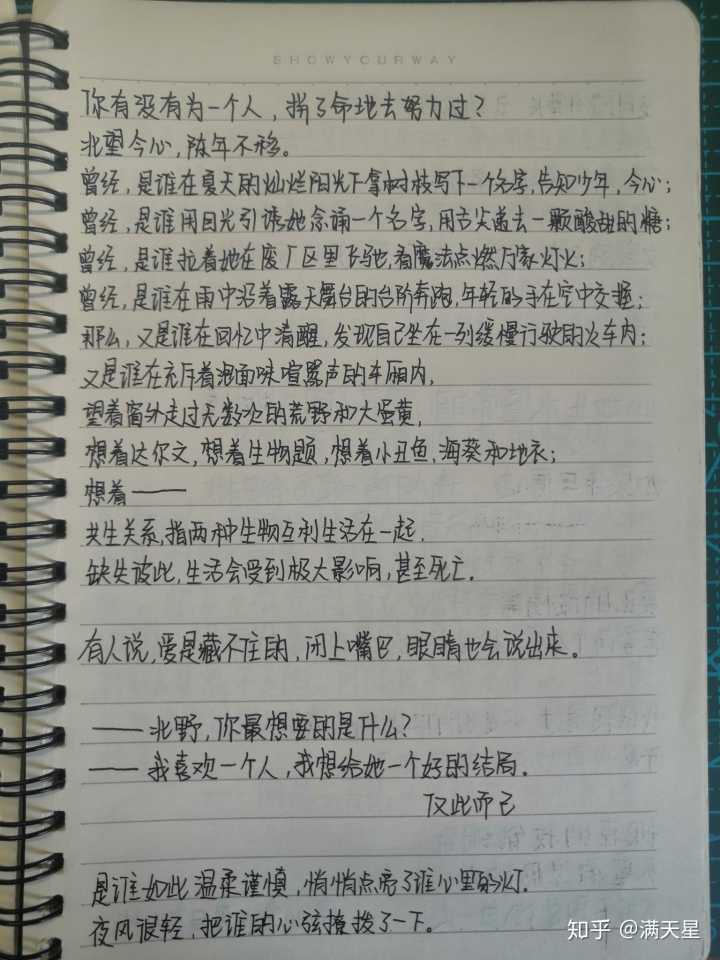 SHOWYOURWAY
你有没有为一个人，拼了命地去努力过？
北望今心，陈年不移。
曾经，是谁在夏天的灿烂阳光下拿树枝写下一个名字，告知少年，今心；
曾经，是谁用目光引诱她念诵一个名字，用舌尖递去一颗酸甜的糖；
曾经，是谁拉着她在废厂区里飞驰，看魔法点燃万家灯火；
曾经，是谁在雨中沿着露天舞台的台阶奔跑，年轻的手在空中交握；
那么，又是谁在回忆中清醒，发现自己坐在一列缓慢行驶的火车内；
又是谁在充斥着泡面味喧嚣声的车厢内，
望着窗外走过无数次的荒野和大蛋黄，
想着达尔文，想着生物题，想着小丑鱼，海葵和地衣；
想着——
共生关系，指两种生物互利生活在一起，
缺失彼此，生活会受到极大影响，甚至死亡.
有人说，爱是藏不住的，闭上嘴巴，眼睛也会说出来。
——北野，你最想要的是什么？
——我喜欢一个人，我想给她一个好的结局.
仅此而已
是谁如此温柔谨慎，悄悄点亮了谁心里的灯.
夜风很轻，把谁的心弦撩拨了一下。
知乎 @满天星